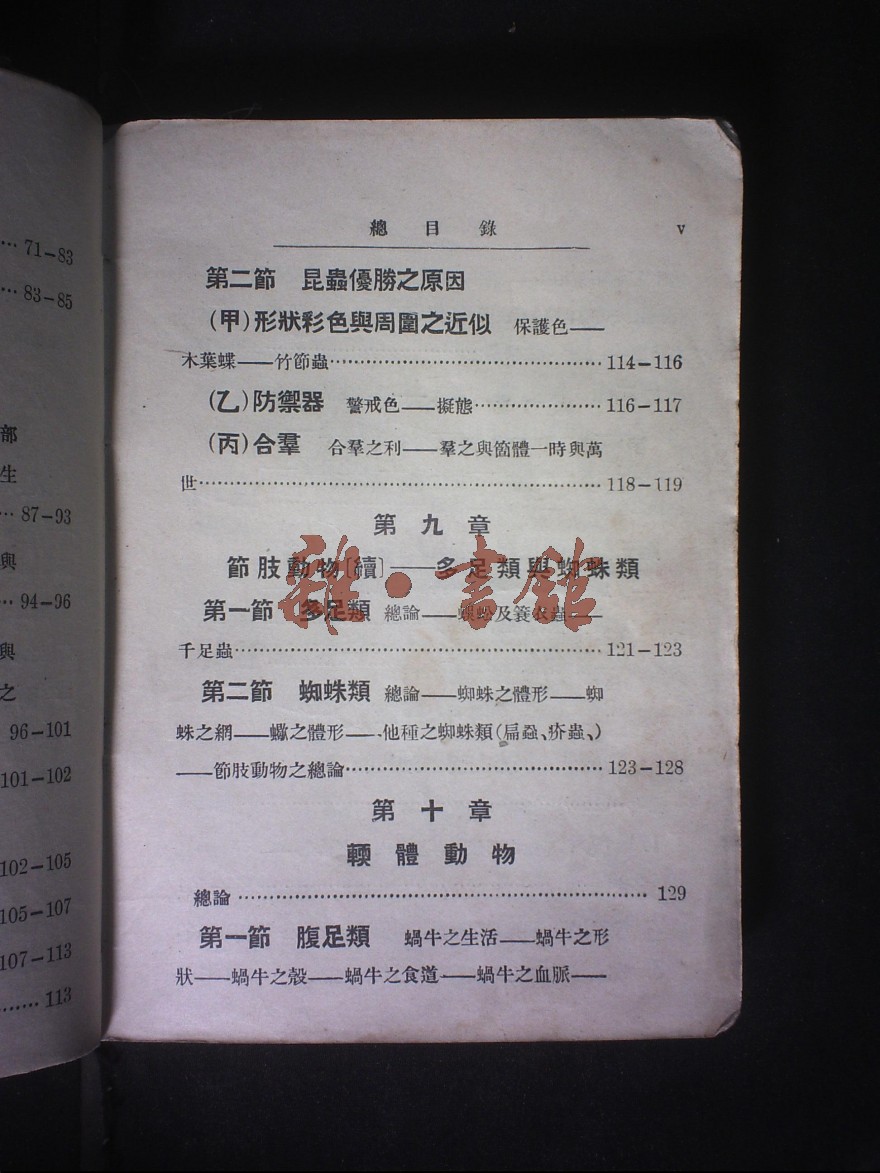 … 71–83
… 83–85
部
生
… 87–93
與
… 94–96
與
之
96–101
101–102
102–105
105–107
107–113
…… 113
總目錄 v
第二節 昆蟲優勝之原因
(甲)形狀彩色與周圍之近似 保護色——
木葉蝶——竹節蟲……114–116
(乙)防禦器 警戒色——擬態……116–117
(丙)合羣 合羣之利——羣之與箇體一時與萬
世……118–119
第九章
節肢動物〔續〕——多足類與蜘蛛類
第一節 多足類 總論——蜈蚣及簑衣蟲——
千足蟲……121–123
第二節 蜘蛛類 總論——蜘蛛之體形——蜘
蛛之網——蠍之體形——他種之蜘蛛類(扁蝨、疥蟲、)
——節肢動物之總論……123–128
第十章
輭體動物
總論……129
第一節 腹足類 蝸牛之生活——蝸牛之形
狀——蝸牛之殼——蝸牛之食道——蝸牛之血脈——
雜·書館